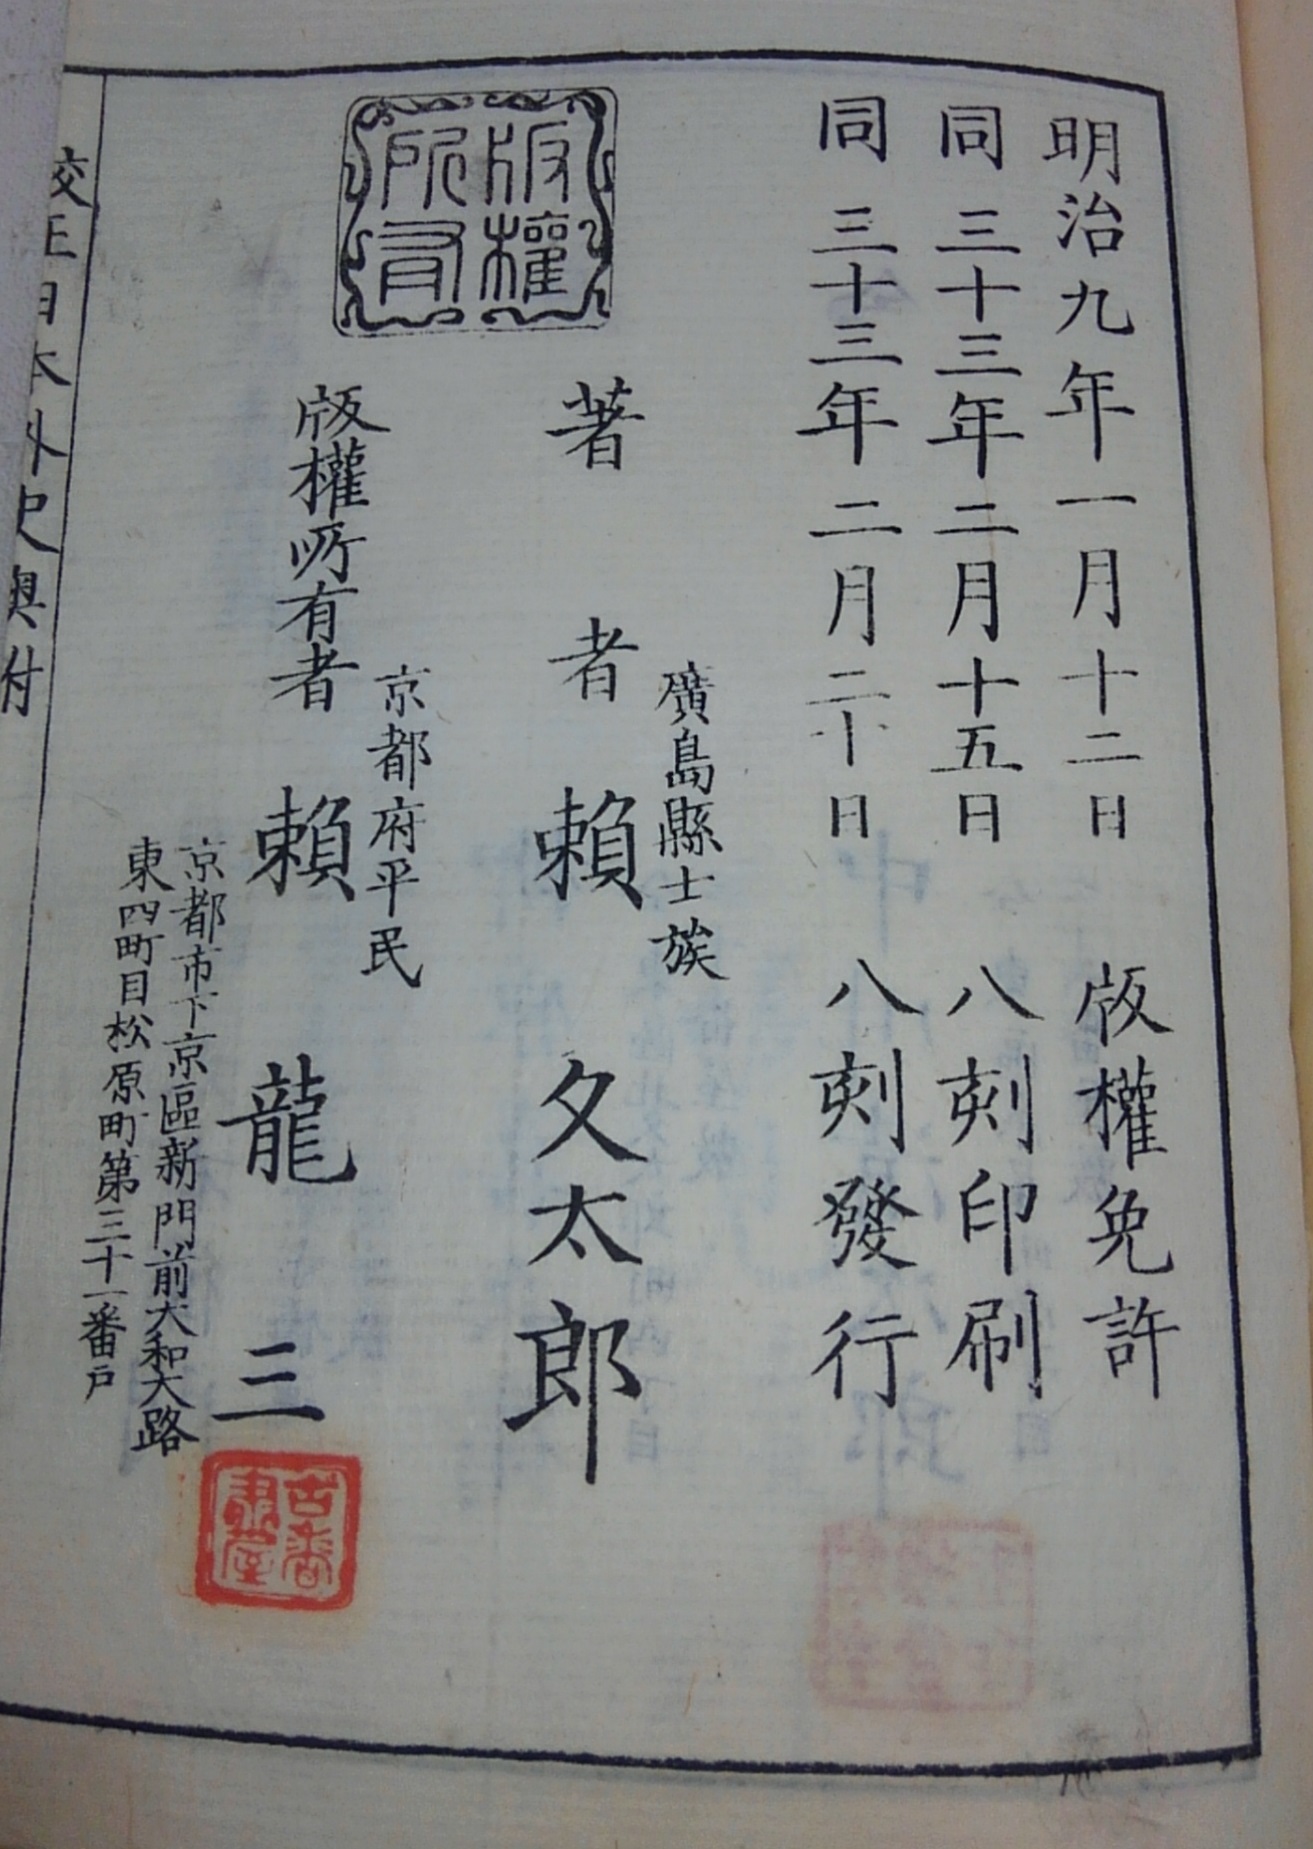 明治九年一月十二日 版權免許
同 三十三年二月十五日 八刻印刷
同 三十三年二月二十日 八刻發行
廣島縣士族
著者 賴久太郎
版權所有
京都府平民
版權所有者 賴龍三
京都市下京區新門前大和大路
東四町目松原町第三十一番戸
校正日本外史奧付